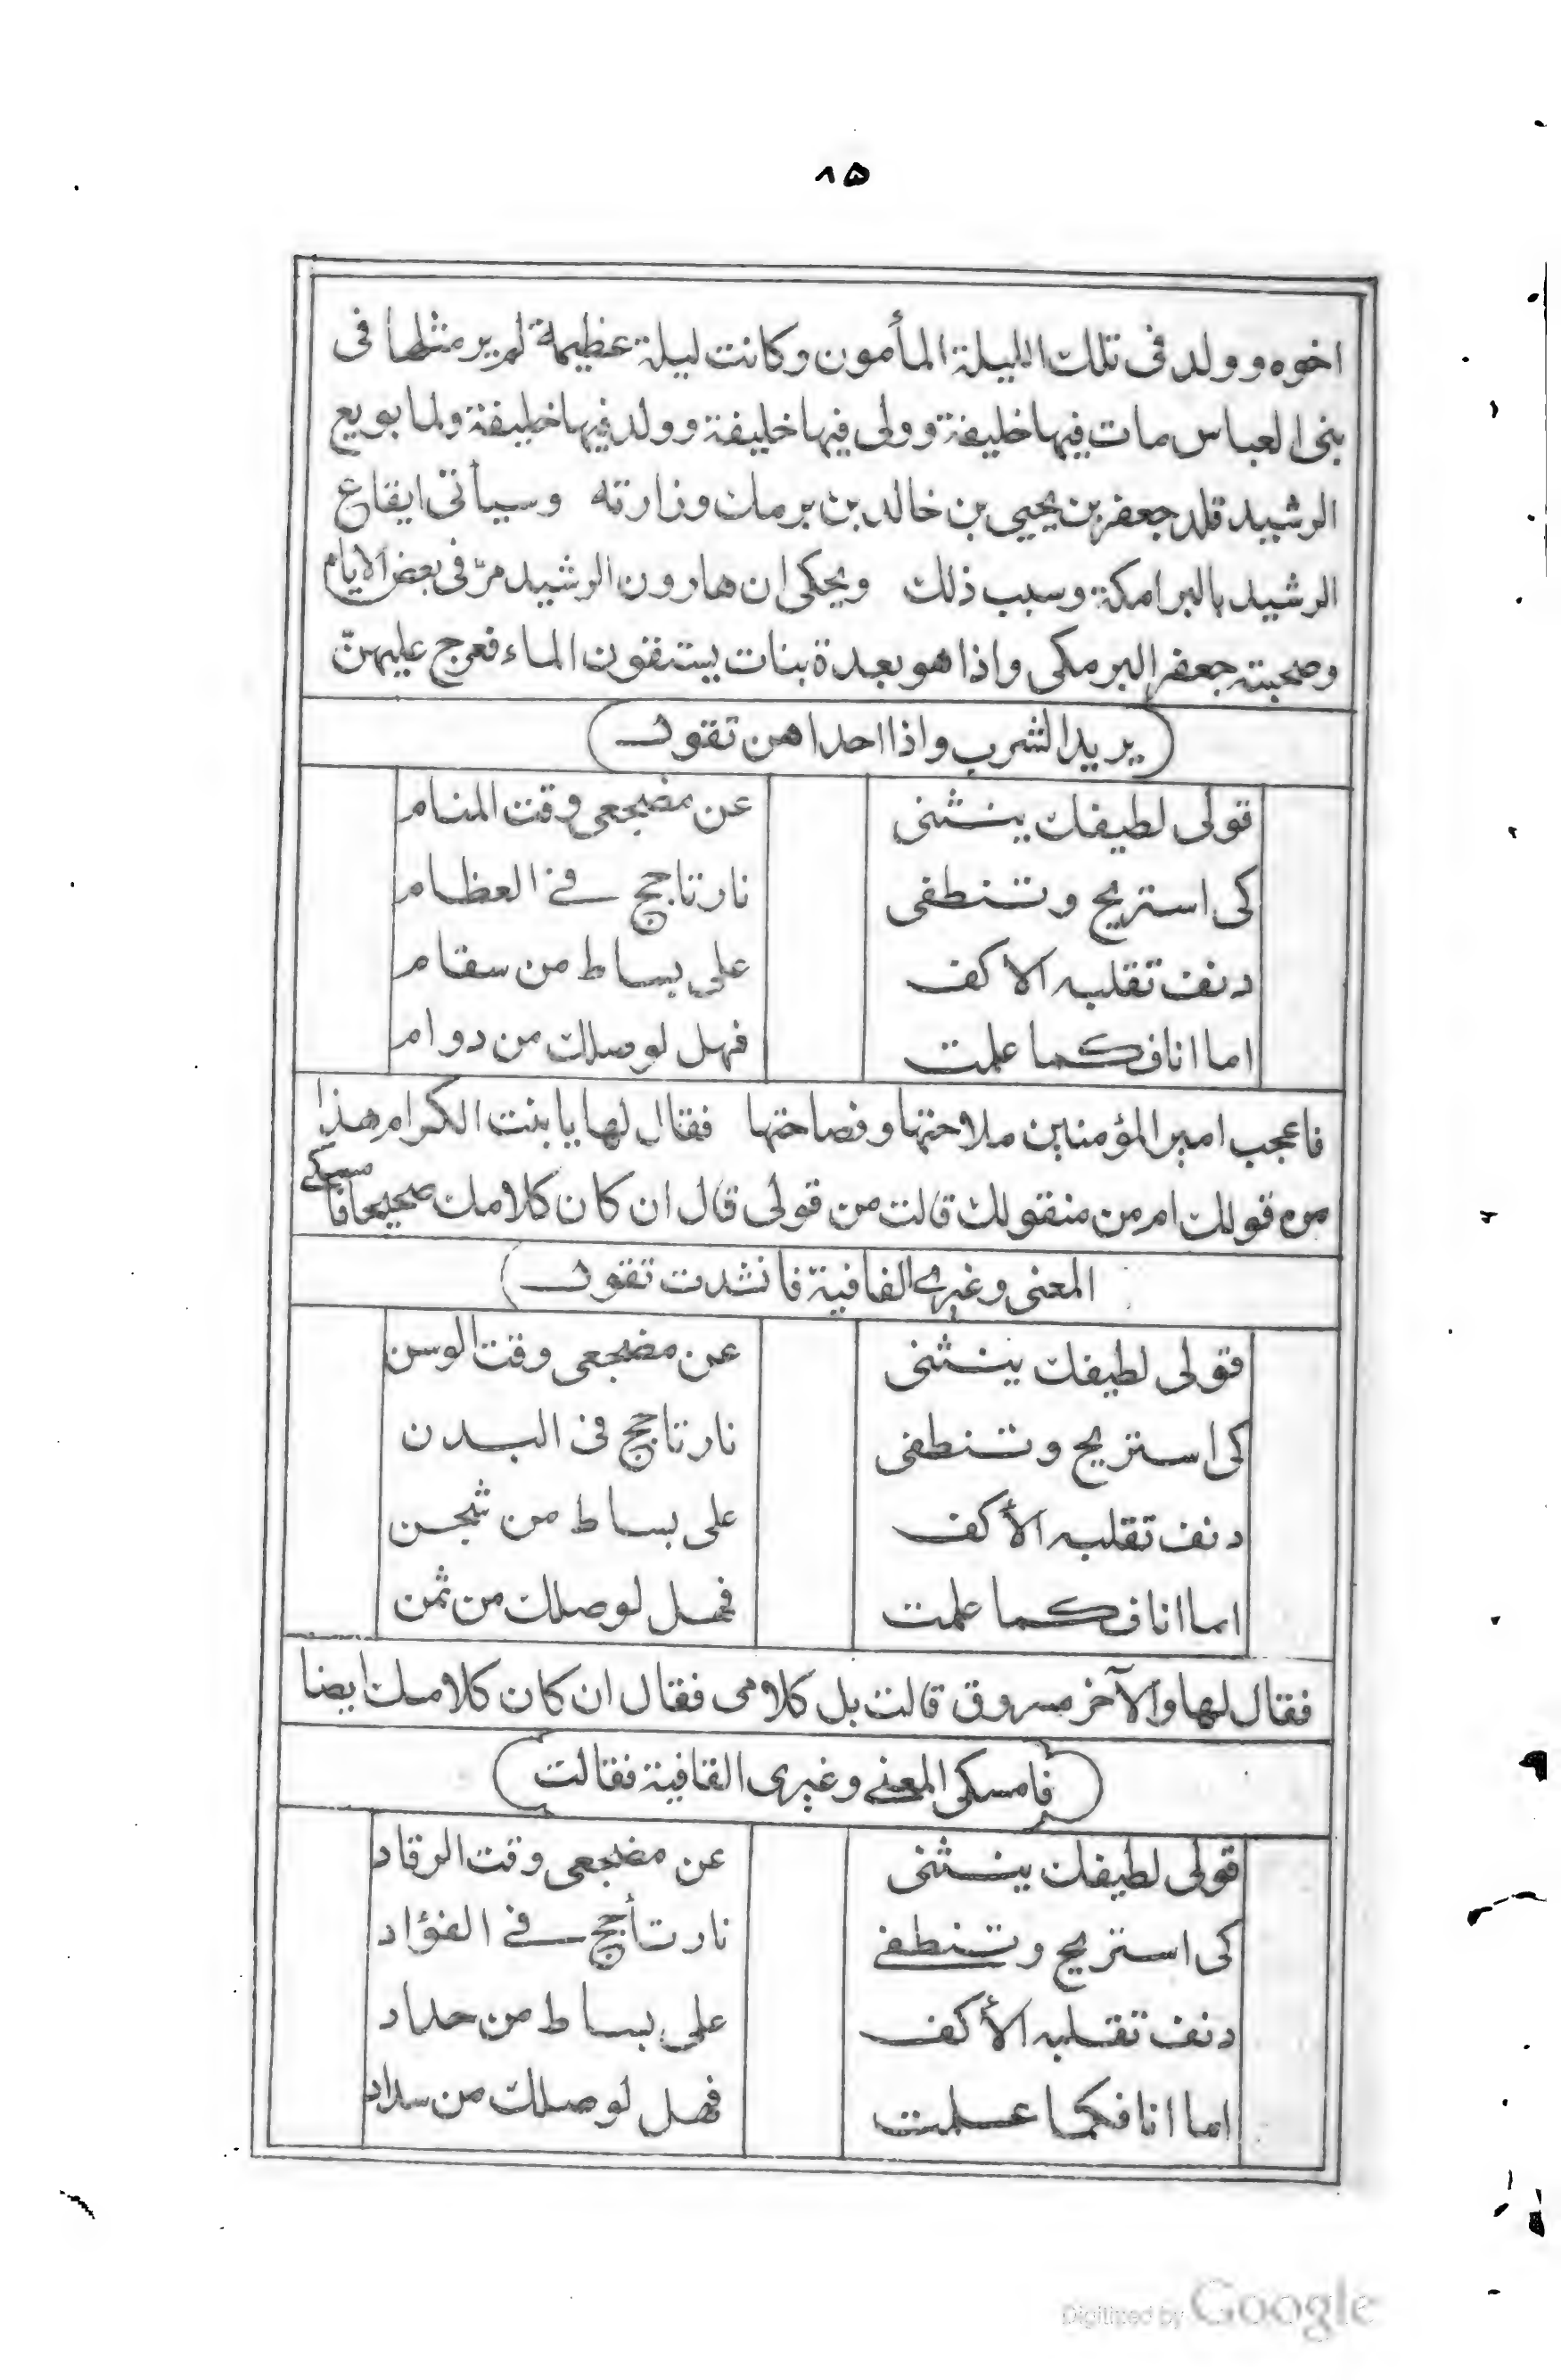 ٨٥
اخوه وولد فى تلك الليلة المأمون وكانت ليلة عظيمة لم ير مثلها فى
بنى العباس مات فيها خليفة وولى فيها خليفة وولد فيها خليفة ولما بويع
الرشيد قلد جعفر بن يحيى بن خالد بن برمك وزارته وسيأتى ايقاع
الرشيد بالبرامكة وسبب ذلك ويحكى ان هارون الرشيد مرّ فى بعض الايام
وصحبته جعفر البرمكى واذا هو بعدة بنات يستقون الماء فعرج عليهنّ
(يريد الشرب واذا احداهن تقول)
قولى لطيفك ينثنى عن مضجعى وقت المنام
كى استريح وتنطفى نار تاجج فى العظام
دنف تقلبه الاكف على بساط من سقام
اما انا فكما علمت فهل لوصلك من دوام
فاعجب امير المؤمنين ملاحتها وفصاحتها فقال لها يا بنت الكرام هذا
من قولك ام من منقولك قالت من قولى قال ان كان كلامك صحيحا فامسكى
المعنى وغيرى القافية فانشدت تقول)
قولى لطيفك ينثنى عن مضجعى وقت الوسن
كى استريح وتنطفى نار تاجج فى البدن
دنف تقلبه الأكف على بساط من شجن
اما انا فكما علمت فهل لوصلك من ثمن
فقال لها والآخر مسروق قالت بل كلامى فقال ان كان كلامك ايضا
(فامسكى المعنى وغيرى القافية فقالت)
قولى لطيفك ينثنى عن مضجعى وقت الرقاد
كى استريح وتنطفى نار تأجج فى الفؤاد
دنف تقلبه الأكف على بساط من حداد
اما انا فكما علمت فهل لوصلك من سداد
Digitized by Google